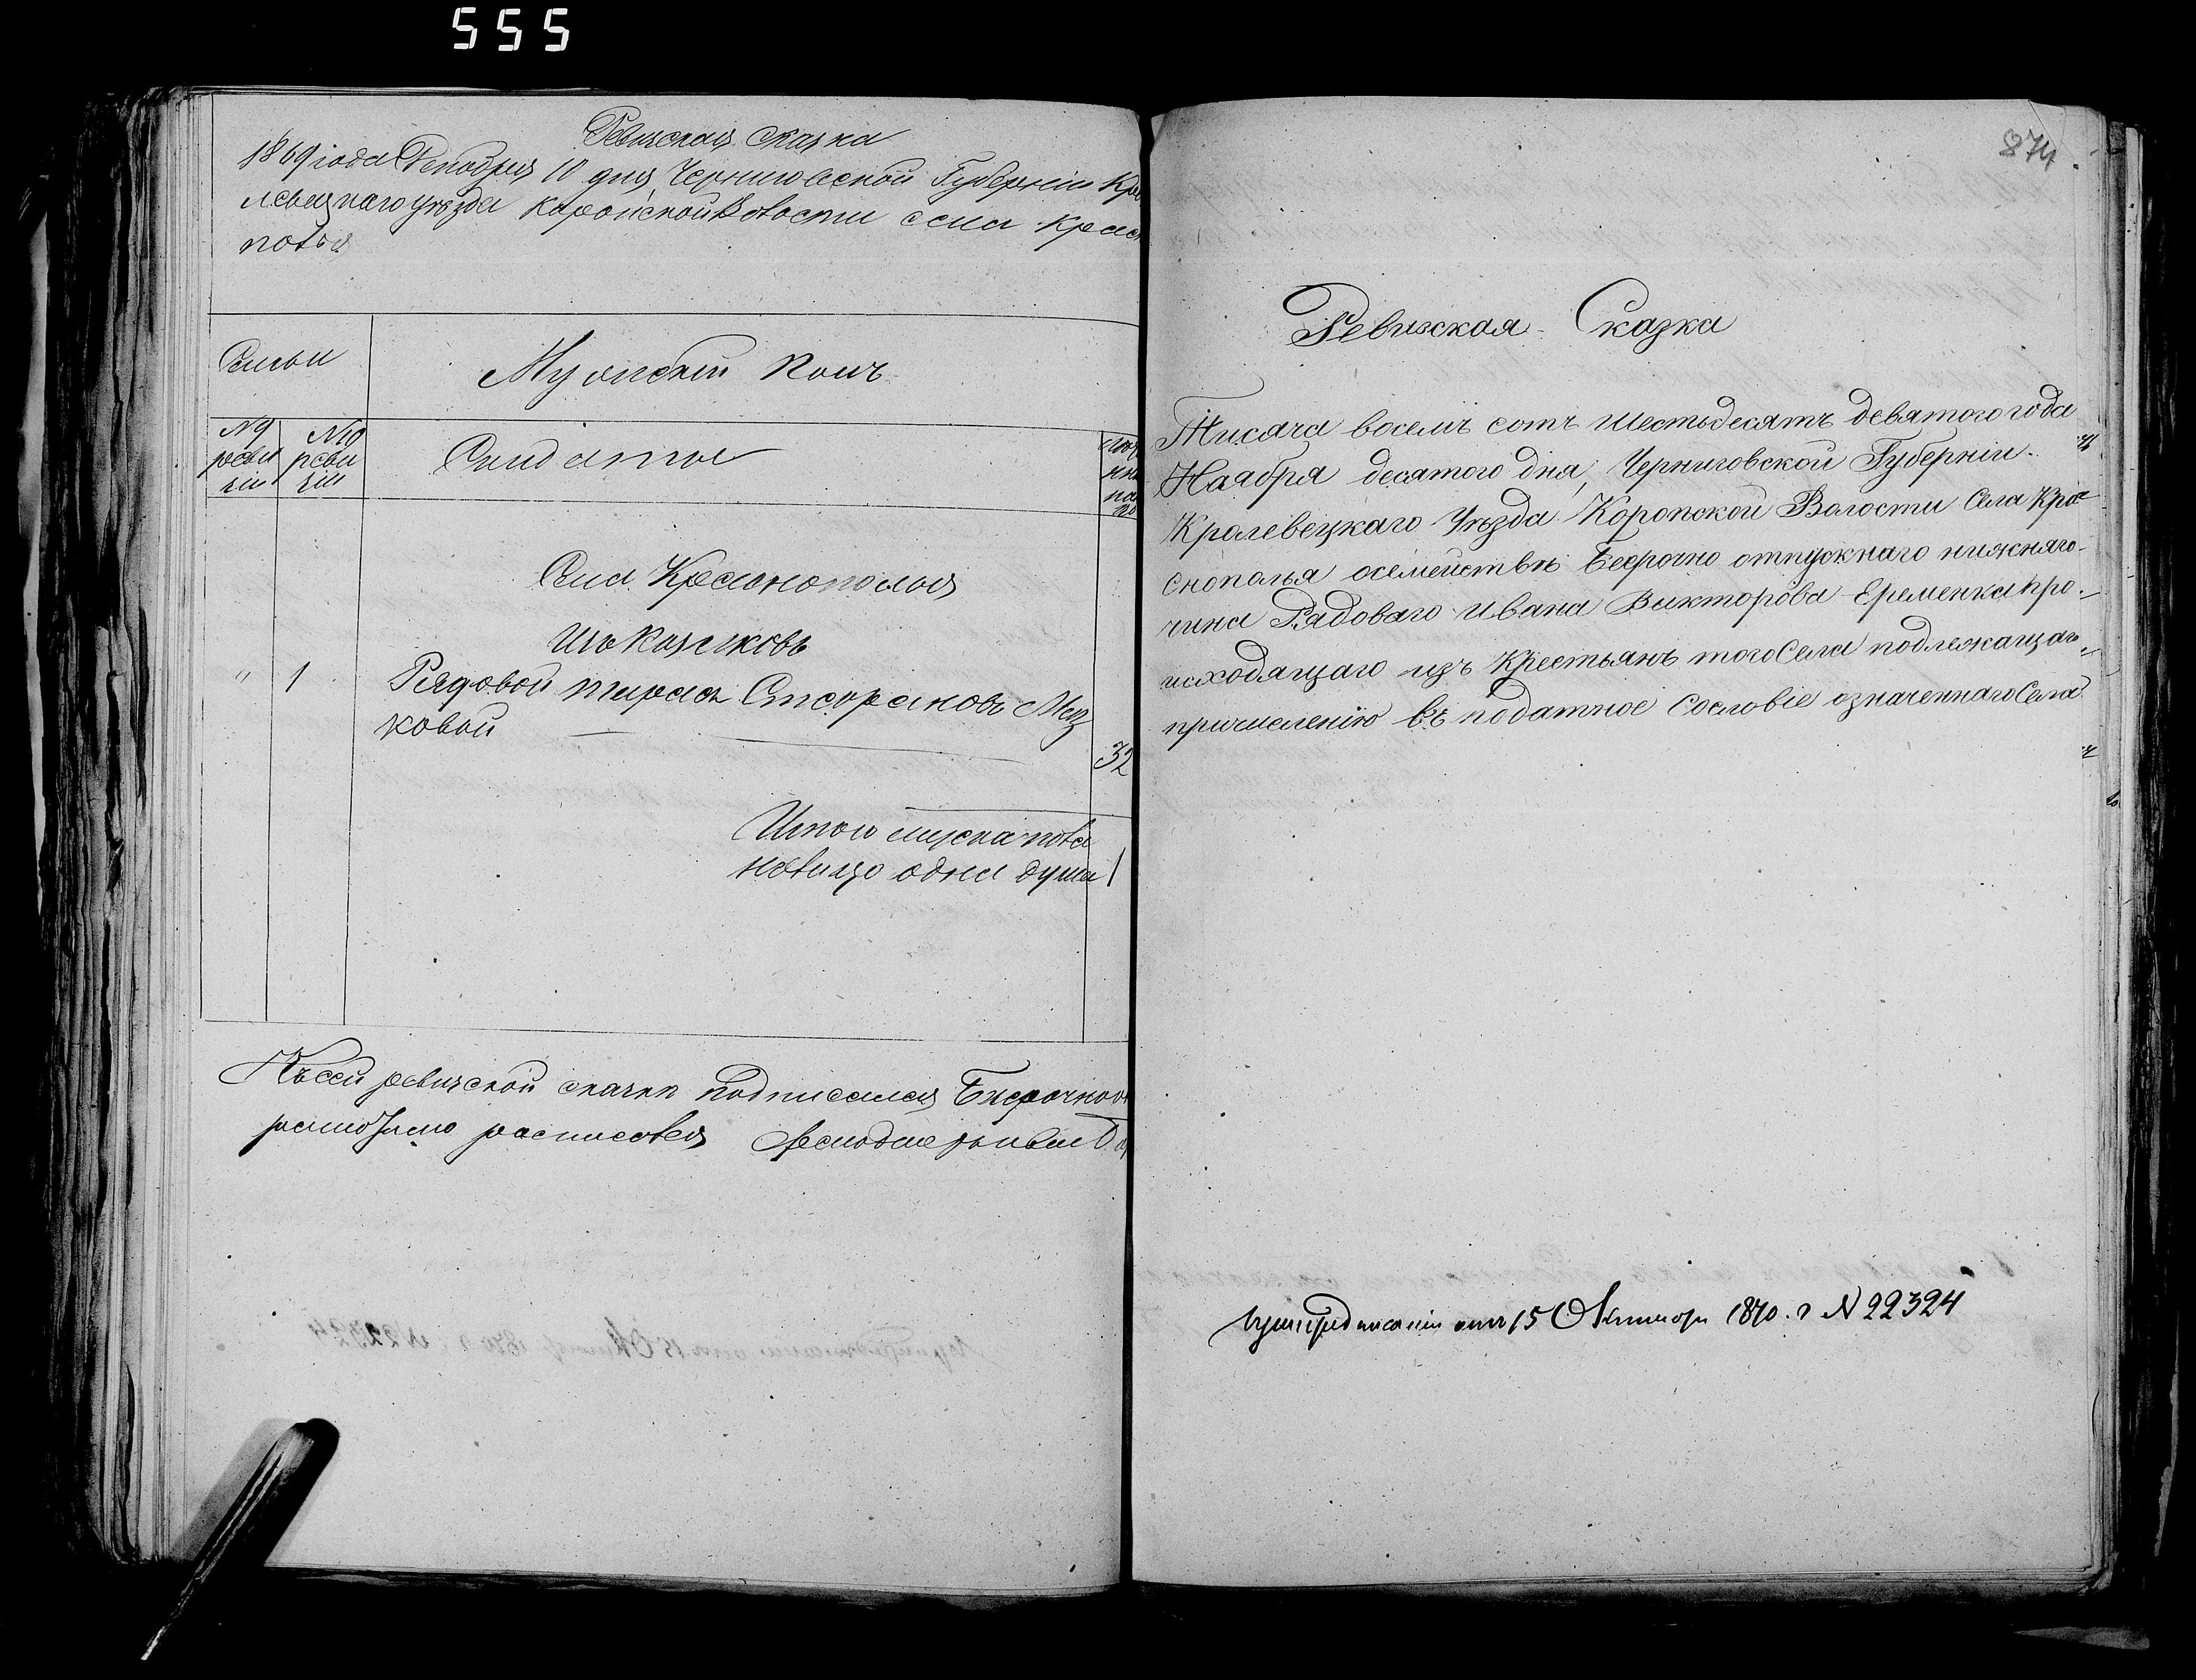 555
Ревизская сказка
1869 года Декабря 10 дня Черниговской Губерніи Кро
левецкаго уезда Коропской Волости села Красно
полья
Семьи
Мужескій полъ
N 9 ревизіи
N 10 ревизіи
Села Краснополья
Изъ Казаковъ
" 1 Рядовой Тарасъ
ковой
32
Итого мужеска пола
налицо одна душа 1
Къ сей ревизской сказки подписался Безсрочно
874
Ревизская Сказка
Тисяча восемъ сотъ шестьдесятъ девятого года
Ноября десятого дня, Черниговской Губерніи
Кролевецкаго Уѣзда Коропской Волости Села Кра-
снополья осемействѣ безсрочно отпускнаго нижняго
чина Рядоваго Ивана Викторова Еременка про-
исходящаго изъ Крестьянъ того Села подлежащаго
причисленію въ податное сословіе означеннаго Села
отъ 15 Октября 1870. г N 22324